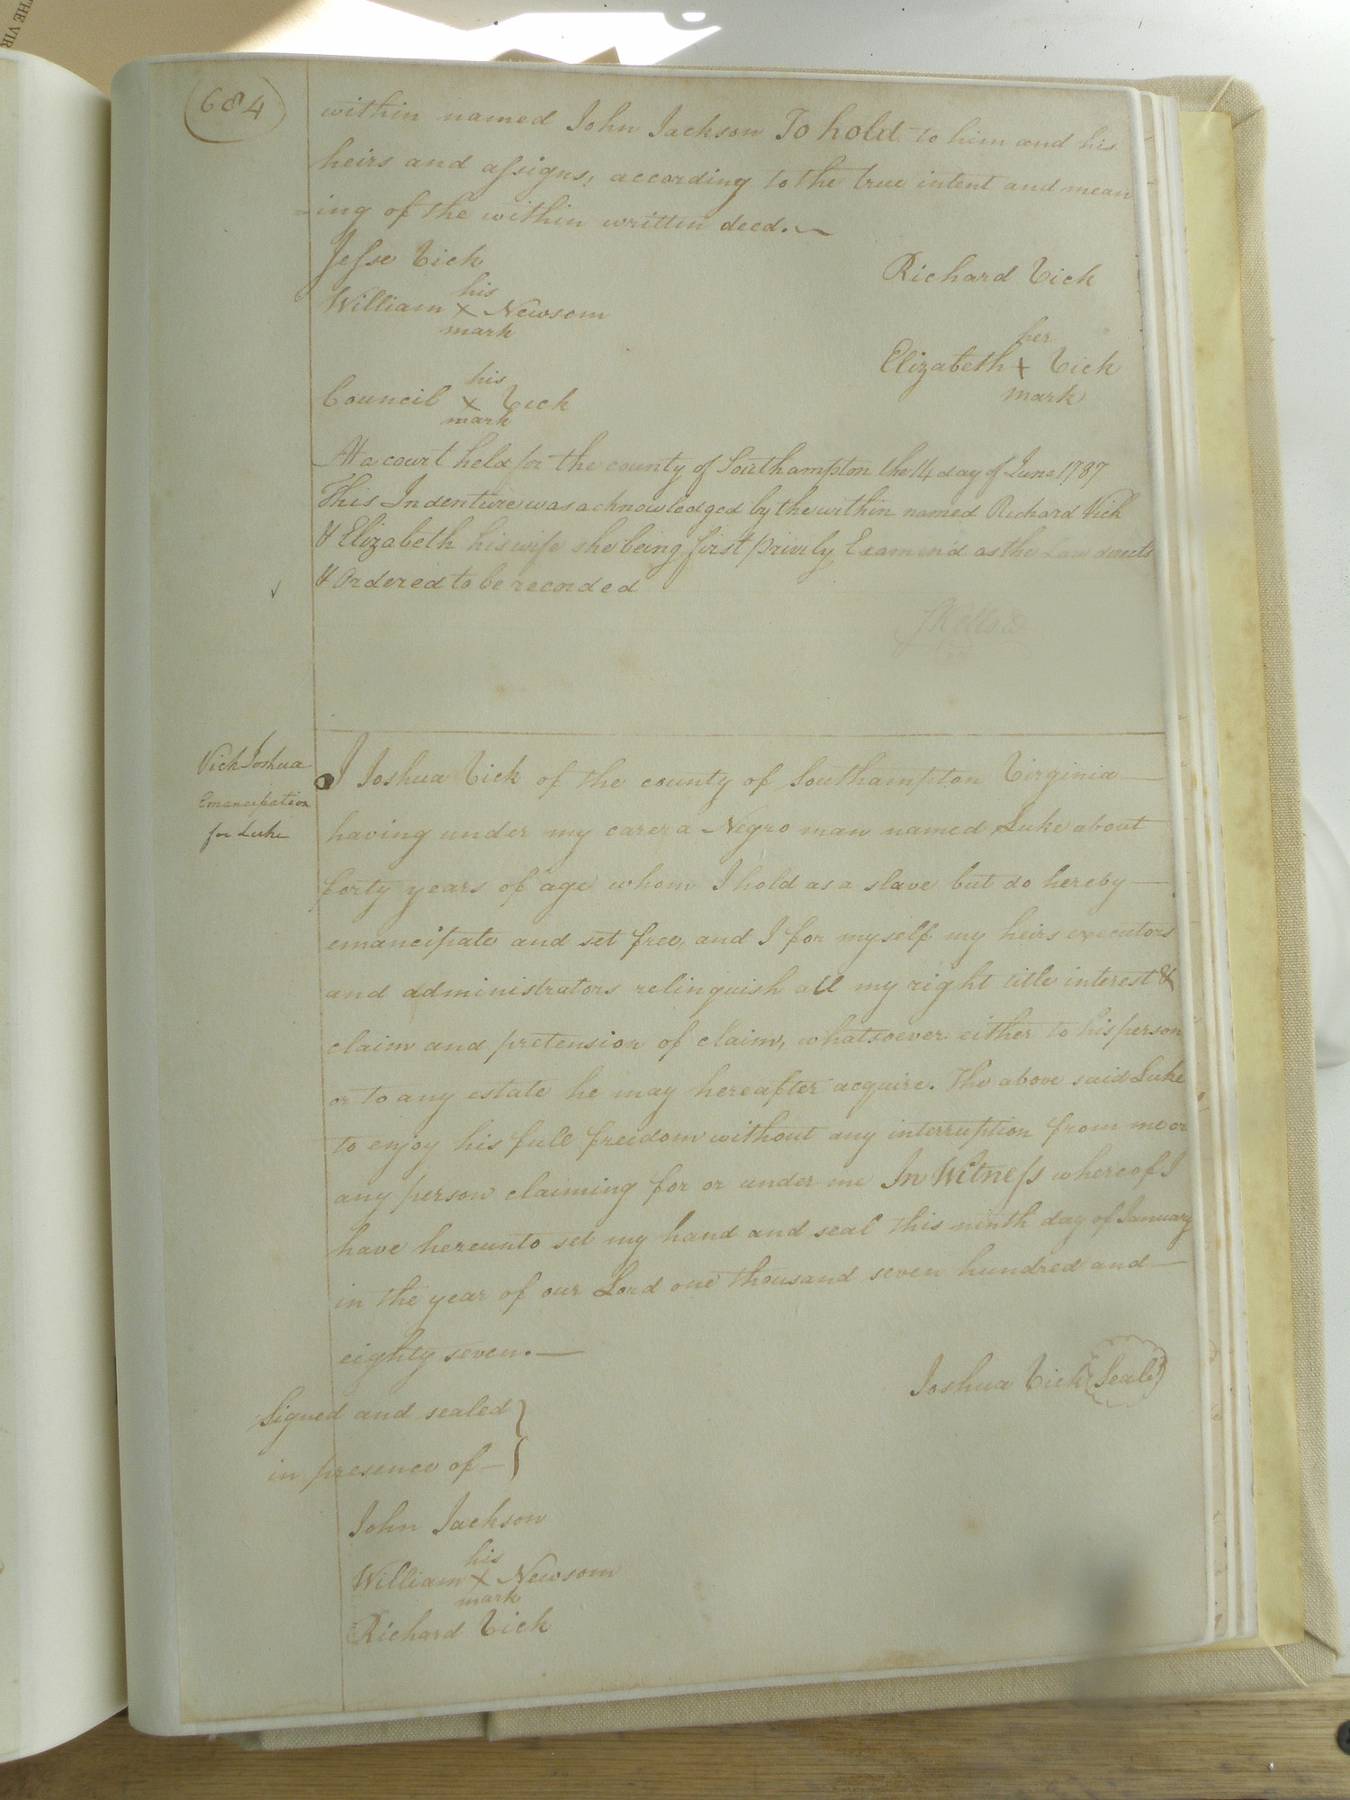 THE VIR
684
within named John Jackson To hold to him and his
heirs and assigns, according to the true intent and mean
=ing of the within written deed.
Jesse Vick
Richard Vick
his
William X Newsom
mark
her
Elizabeth X Vick
mark
his
Council X Vick
mark
At a court held for the county of Southampton the 14 day of June 1787
This Indenture was acknowledged by the within named Richard Vick
& Elizabeth his wife she being first privily Examin'd as the Law directs
& Ordered to be recorded
Vick Joshua
Emancipation
for Luke
I Joshua Vick of the county of Southampton Virginia
having under my care a Negro man named Luke about
forty years of age whom I hold as a slave but do hereby
emancipate and set free, and I for myself my heirs executors
and administrators relinquish all my right title interest &
claim and pretension of claim, whatsoever either to his person
or to any estate he may hereafter acquire. The above said Luke
to enjoy his full freedom without any interruption from me or
any person claiming for or under me In Witness whereof I
have hereunto set my hand and seal this ninth day of January
in the year of our Lord one thousand seven hundred and
eighty seven.
Joshua Vick (Seal)
Signed and sealed
in presence of
John Jackson
his
William X Newsom
mark
Richard Vick